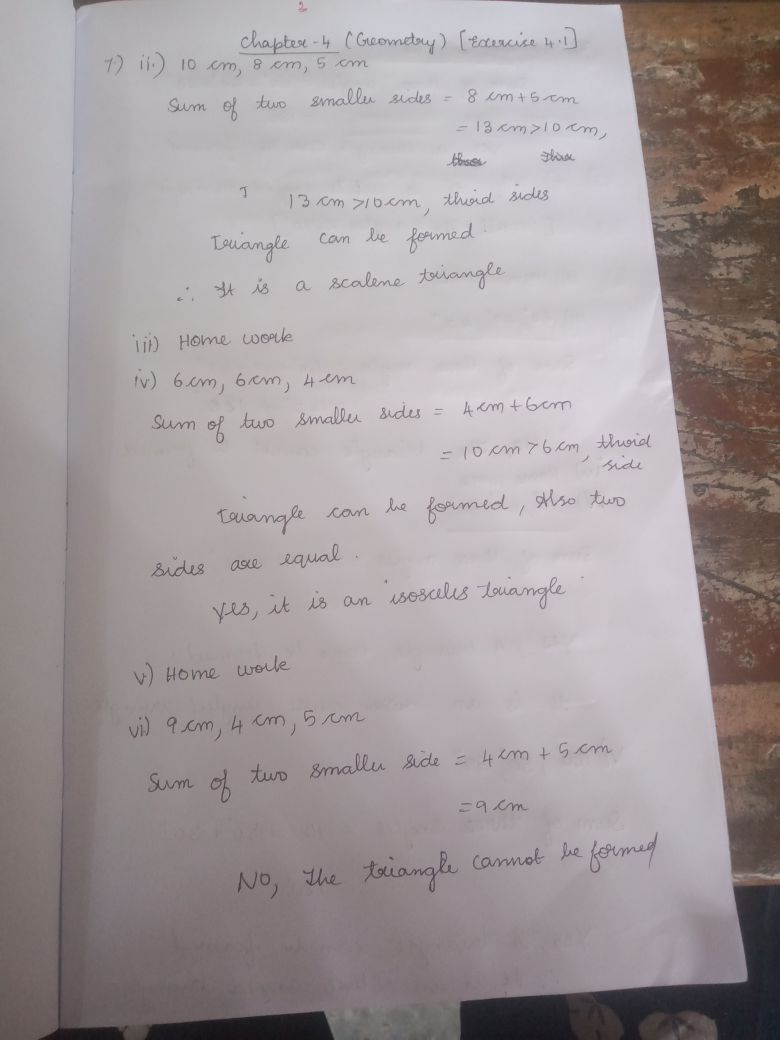 2
Chapter-4 (Geometry) [Exercise 4.1]
7.) ii.) 10 cm, 8 cm, 5 cm
Sum of two smaller sides = 8 cm + 5 cm
= 13 cm > 10 cm,
13 cm > 10 cm, thoid sides
Triangle can be formed.
∴ It is a scalene triangle
iii) Home work
iv) 6 cm, 6 cm, 4 cm
Sum of two smaller sides = 4 cm + 6 cm
= 10 cm > 6 cm, thoid
side
triangle can be formed, Also two
sides are equal.
Yes, it is an isosceles triangle
v) Home work
vi) 9 cm, 4 cm, 5 cm
Sum of two smaller side = 4 cm + 5 cm
= 9 cm
NO, The triangle cannot be formed